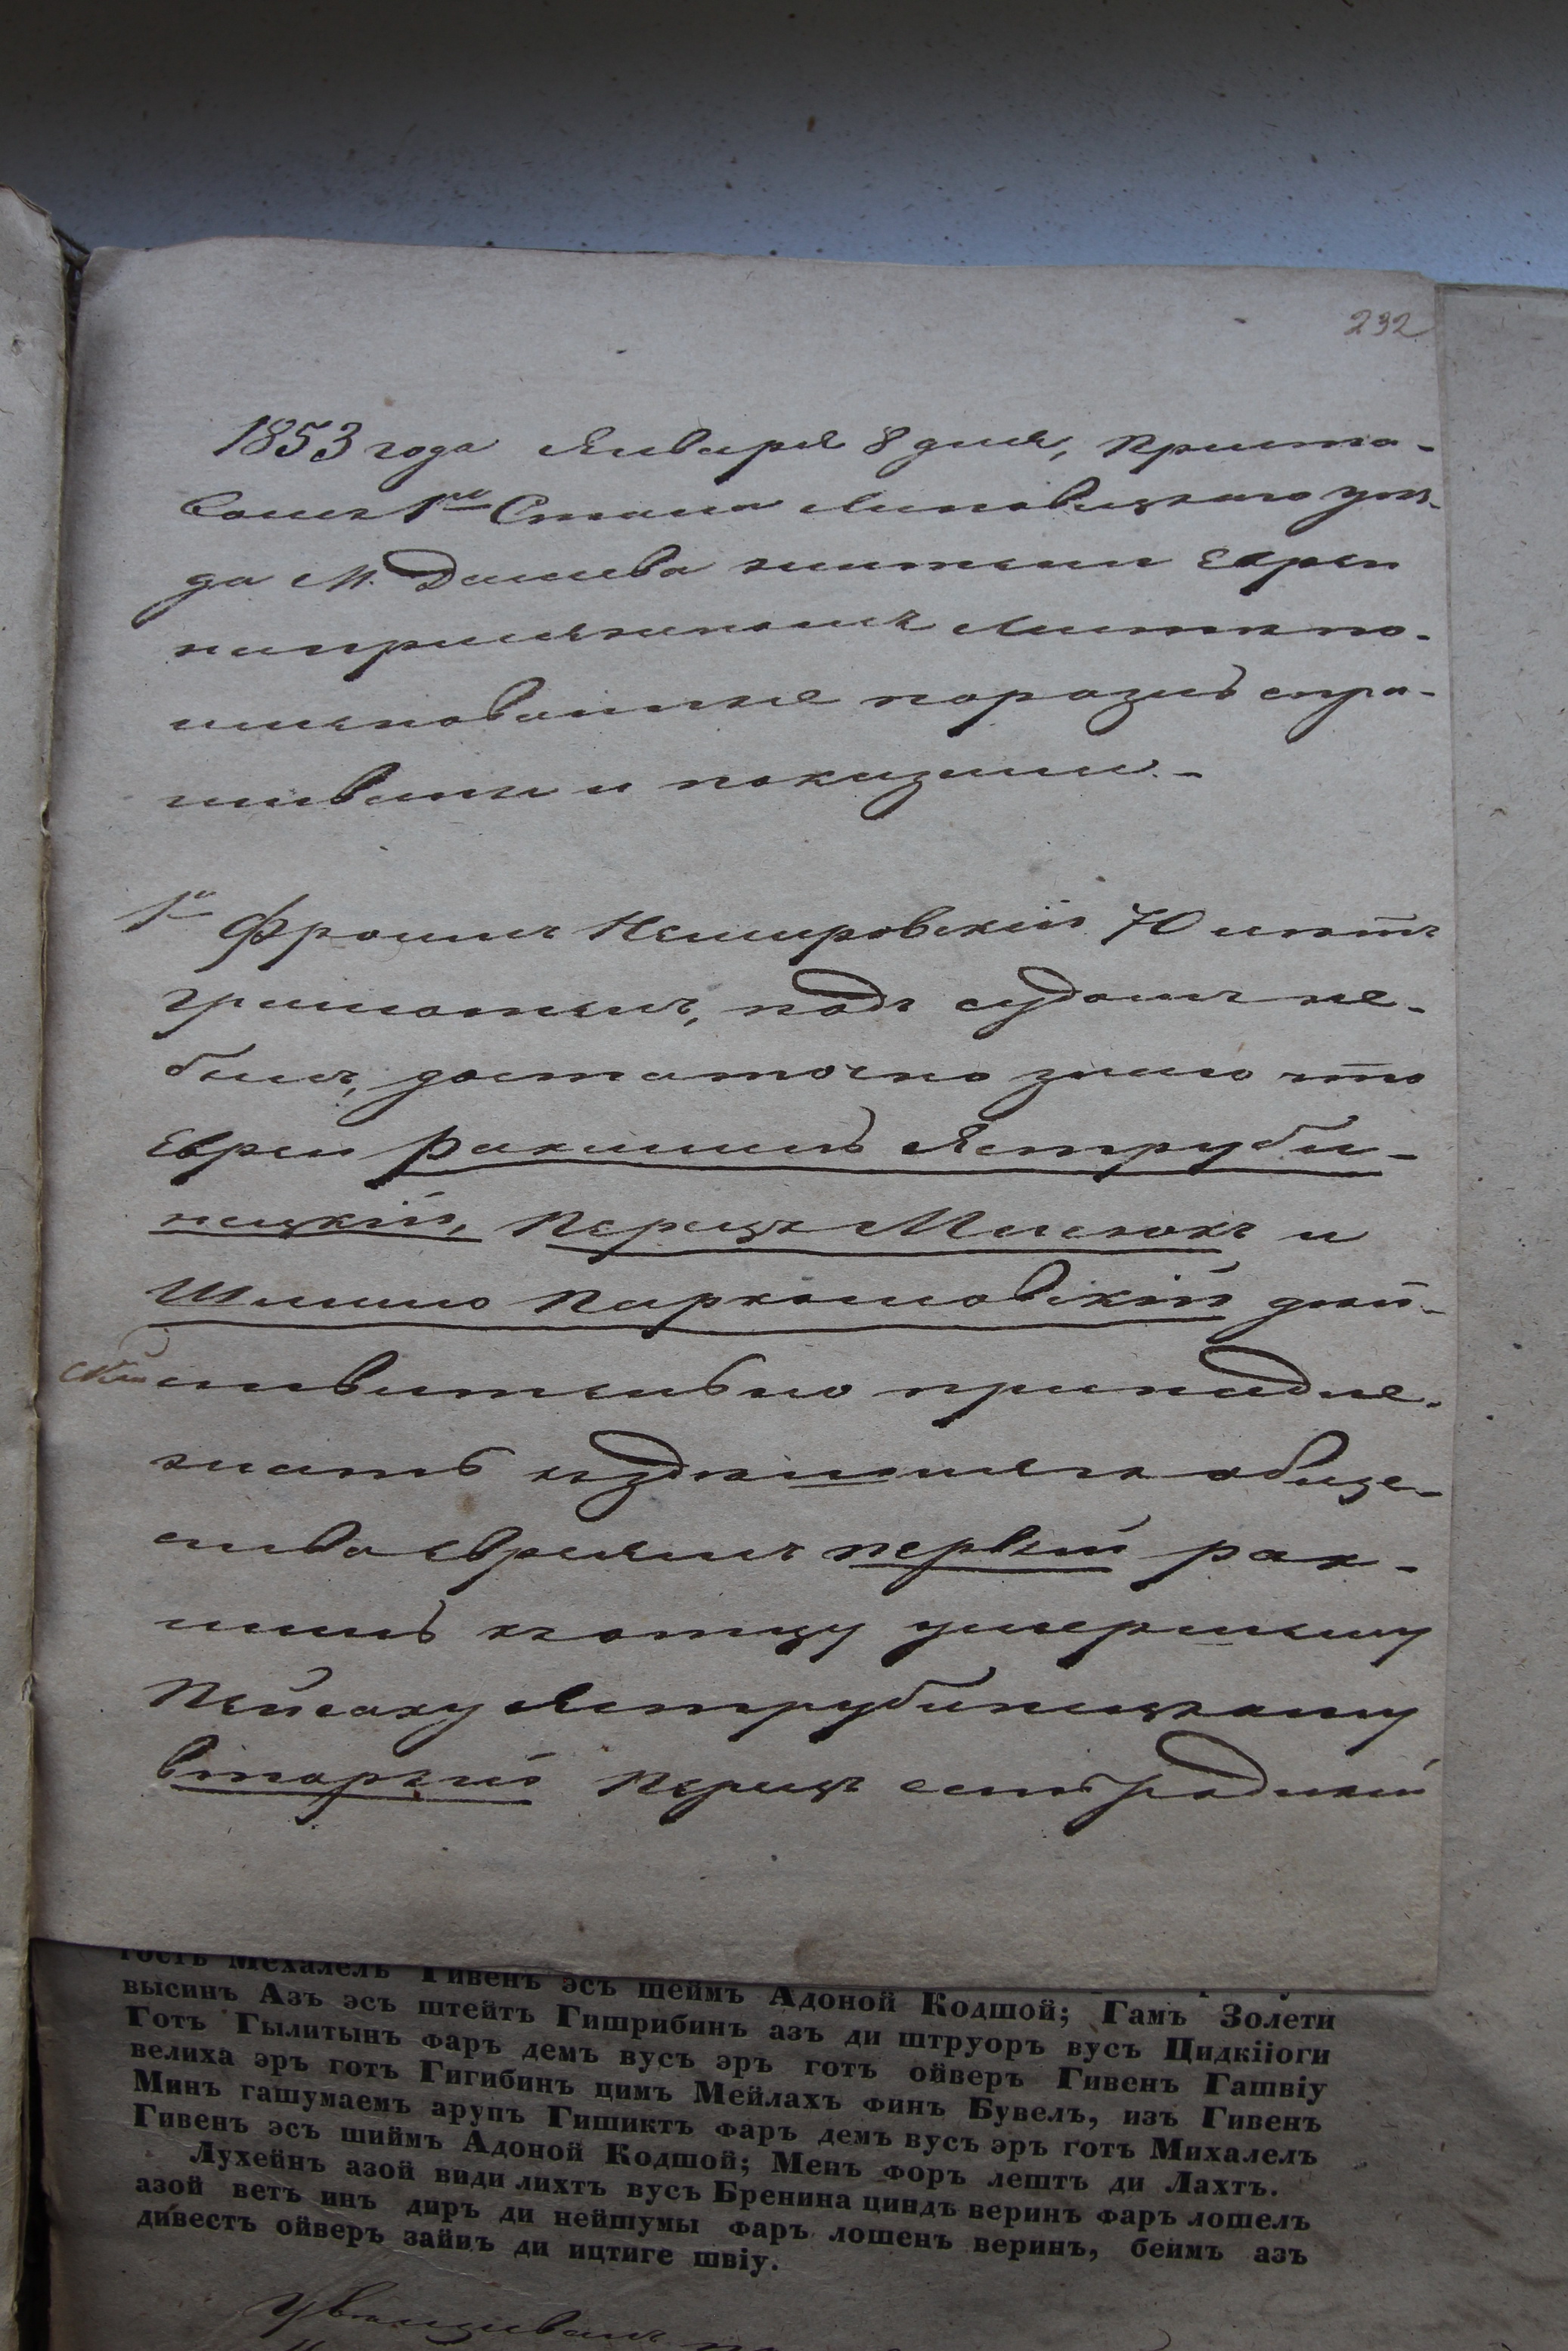 232
1853 года Января 8 дня, Приста-
вомъ 1го Стана Липовецкаго уѣз-
да М. Дашева жители Евреи
наприсяжномъ Листѣ по-
именованные порознь спра-
шиваны и показали. -
1й Фроимъ Немировскій 70 лѣтъ
грамотенъ, подъ судомъ не-
былъ, достаточно знаю что
Евреи Рахмиль Яструби-
нецкій, Перецъ Мислюкъ и
Шлиомо Пархомовскій дѣй-
ствительно принадле-
жатъ къздѣшнемъ обще-
ства евреямъ первый Рах-
миль къотцу умершему
Пейсаху Яструбинецкому
вторый Перецъ есть родной
гость Мехалелъ Гивенъ эсъ шеймъ Адоной Кодшой; Гамъ Золети
высинъ Азъ эсъ штейтъ Гишрибинъ азъ ди штруоръ вусъ Цидкіюги
Готъ Гылитынъ фаръ демъ вусъ эръ готъ ойверъ Гивенъ Гашвіу
велиха эръ готъ Гигибинъ цимъ Мейлахъ финъ Бувелъ, изъ Гивенъ
Минъ гашумаемъ арупъ Гишиктъ фаръ демъ вусъ эръ готъ Михалелъ
Гивенъ эсъ шиймъ Адоной Кодшой; Менъ форъ лештъ ди Лахтъ.
Лухейнъ азой види лихтъ вусъ Бренина циндъ веринъ фаръ лошелъ
азой ветъ инъ диръ ди нейшумы фаръ лошенъ веринъ, беимъ азъ
дивестъ ойверъ зайнъ ди ицтиге швіу.